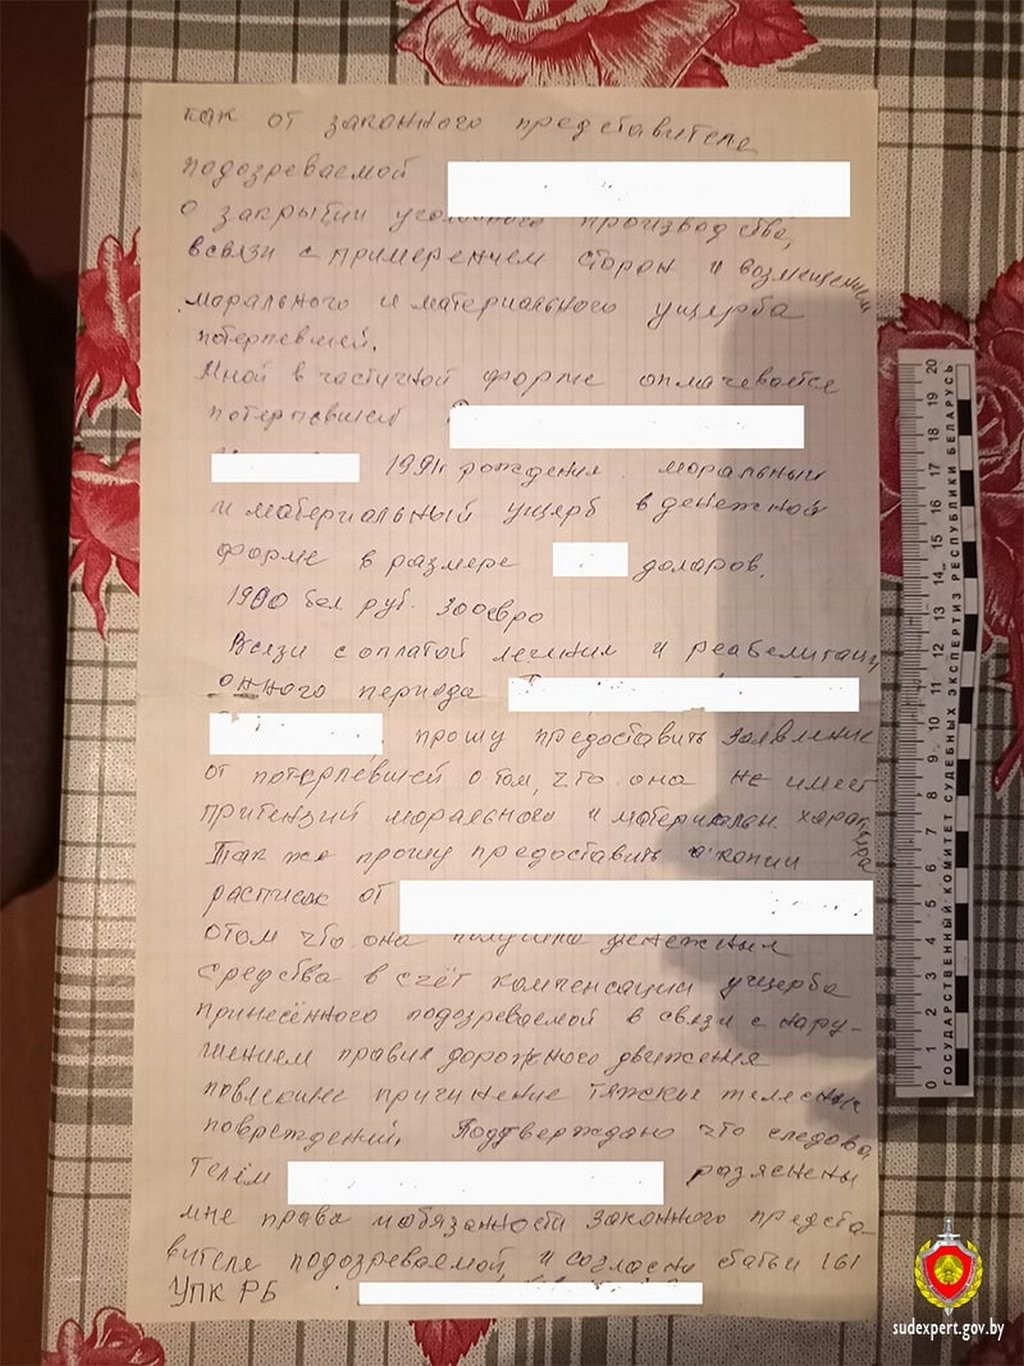 как от законного представителя
подозреваемой
о закрытии уголовного производства,
всвязи с примерением сторон и возмещением
морального и материального ущерба
потерпевшей.
Мной в частичной форме оплачевается
потерпевшей
1991г рождения моральный
и материальный ущерб в денежной
форме в размере доларов,
1900 бел руб. 300евро
Всвязи с оплатой лечения и реабелитаци
онного периода
прошу предоставить заявление
от потерпевшей о том, что она не имеет
притензий моральново и материальн. характера
Так же прошу предоставить копии
расписок от
отом что она получила денежныя
средства в счёт компенсации ущерба
принесённого подозреваемой в связи с нару-
шением правил дорожного движения
повлекшее причинение тяжские телесные
повреждений. Подтверждаю что следова
телем разяснены
мне права и обязанности законного предста-
вителя подозреваемой, и согласно статьи 161
УПК РБ
0 1 2 3 4 5 6 7 8 9 10 11 12 13 14 15 16 17 18 19 20
ГОСУДАРСТВЕННЫЙ КОМИТЕТ СУДЕБНЫХ ЭКСПЕРТИЗ РЕСПУБЛИКИ БЕЛАРУСЬ
sudexpert.gov.by